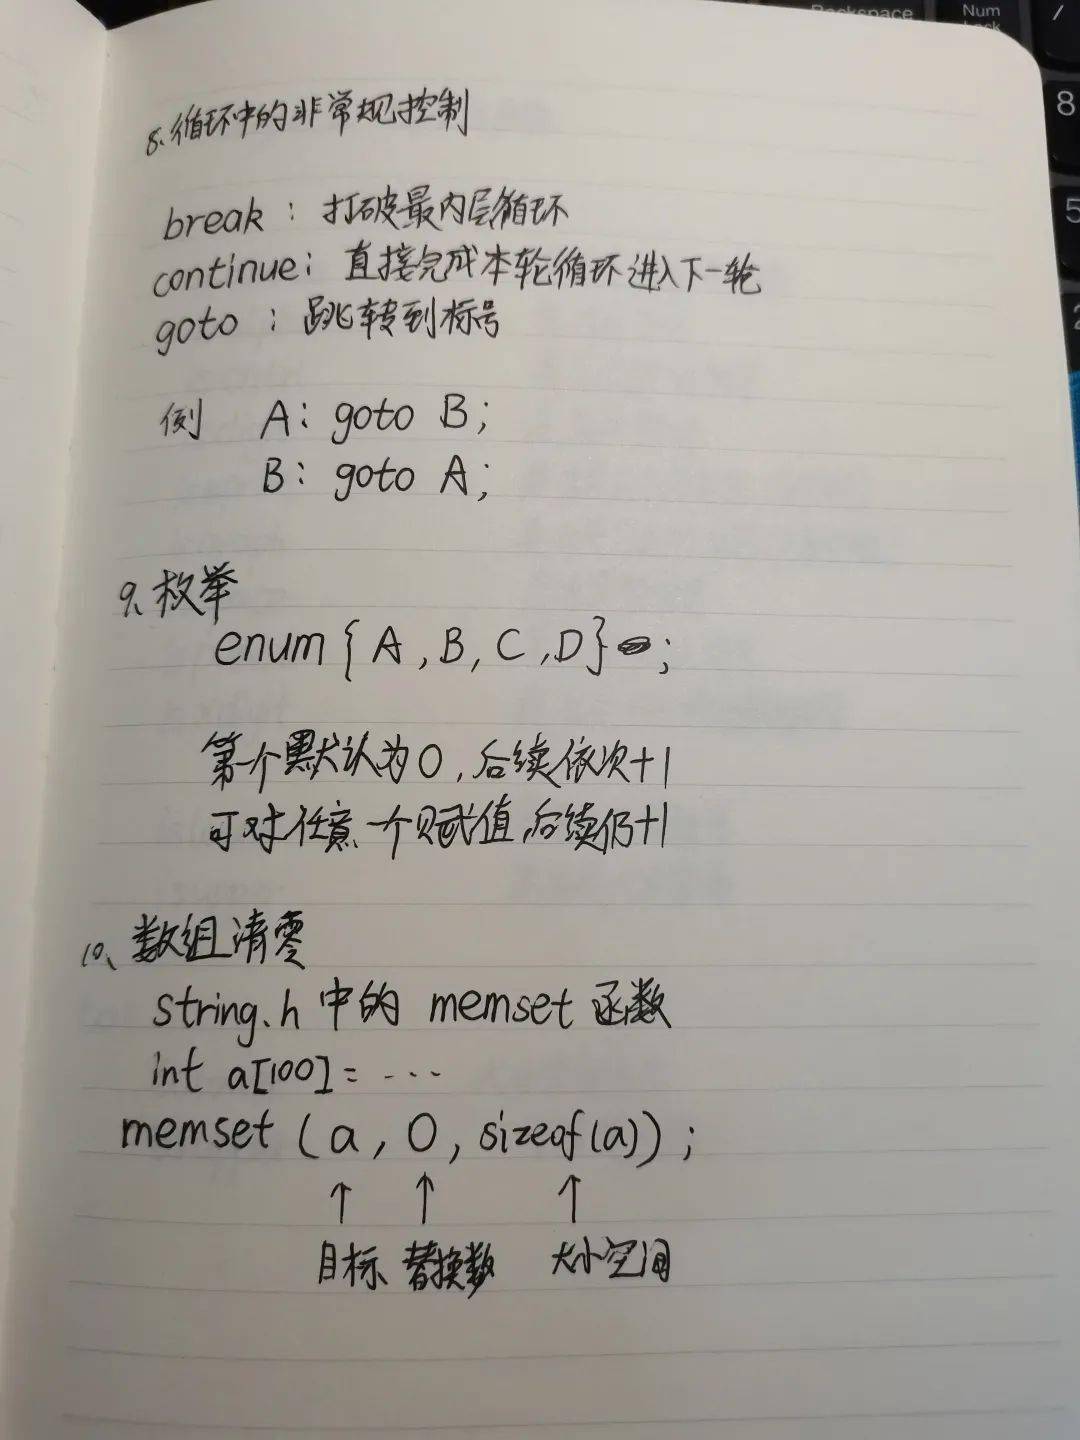 Backspace
Num
Lock
/
8
5
2
8、循环中的非常规控制
break：打破最内层循环
continue：直接完成本轮循环进入下一轮
goto：跳转到标号
例 A：goto B;
B：goto A;
9、枚举
enum{A,B,C,D};
第一个默认为0,后续依次+1
可对任意一个赋值,后续仍+1
10、数组清零
string.h 中的 memset 函数
int a[100]=...
memset(a,0,sizeof(a));
↑ ↑ ↑
目标 替换数 大小空间